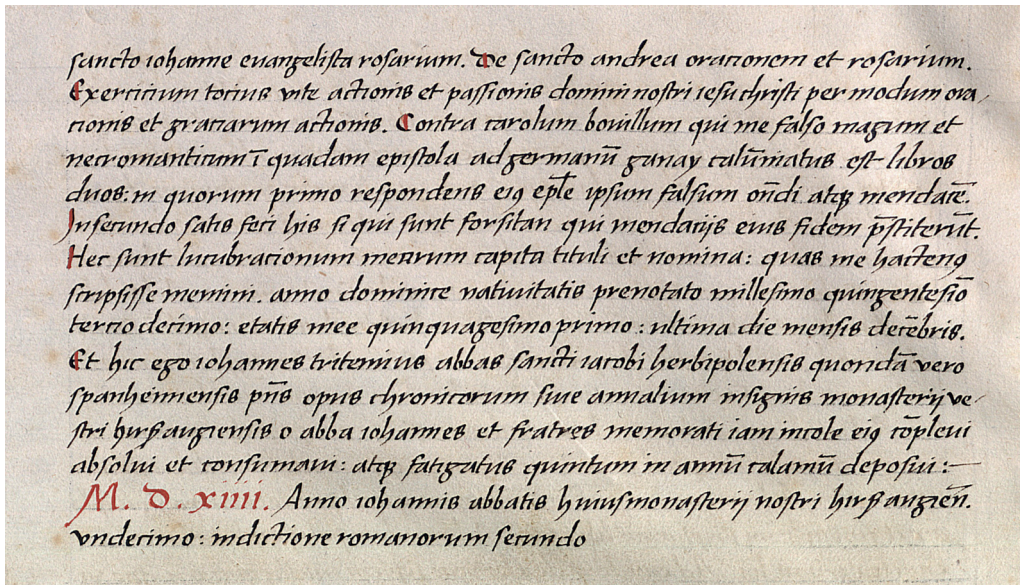 sancto iohanne euangelista rosarium. De sancto andrea orationem et rosarium.
Exercitium totius vite actionis et passionis domini nostri iesu christi per modum ora/
tionis et gratiarum actionis. Contra carolum bouillum qui me falso magum et
necromanticum ī quadam epistola ad germanū ganay calūmiatus est libros
duos: in quorum primo respondens eiꝫ ep̄le ipsum falsum on̄di atqꝫ mendacē.
In secundo satis feci his si qui sunt forsitan qui mendacijs eius fidem p̄stiterūt.
Hec sunt lucubracionum mearum capita tituli et nomina: quas me hactenꝰ
scripsisse memini. anno dominice natiuitatis prenotato millesimo quingentesiō
tercio decimo: etatis mee quinquagesimo primo: ultima die mensis decēbris.
Et hic ego iohannes tritemius abbas sancti iacobi herbipolensis quondā vero
spanheimensis pn̄s opus chronicorum siue annalium insignis monasterij ve/
stri hirsaugiensis o abba iohannes et fratres memorati iam incole eiꝰ cōpleui
absolui et consumaui: atqꝫ fatigatus quintum in annū calamū deposui:—
M. D. xiiii. Anno iohannis abbatis huius monasterij nostri hirsaugien̄.
vndecimo: indictione romanorum secundo